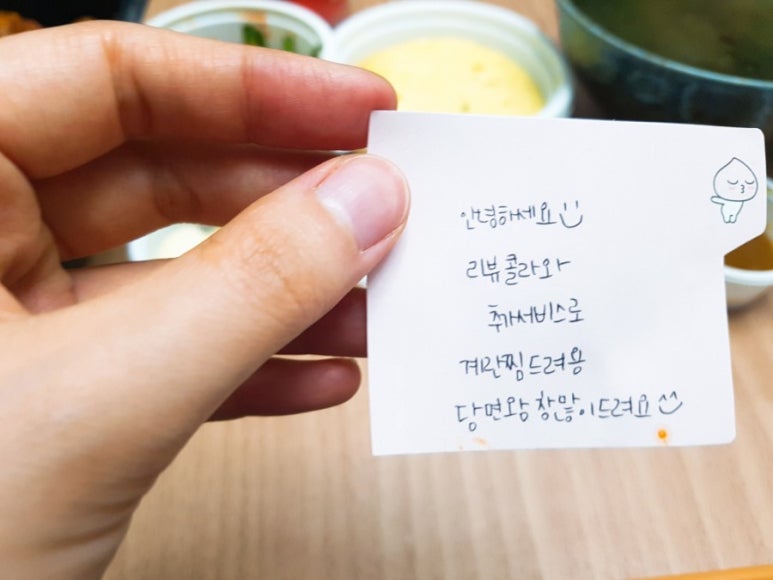 안녕하세요
리뷰콜라와
추가서비스로
계란찜드려용
당면왕창많이드려요^^